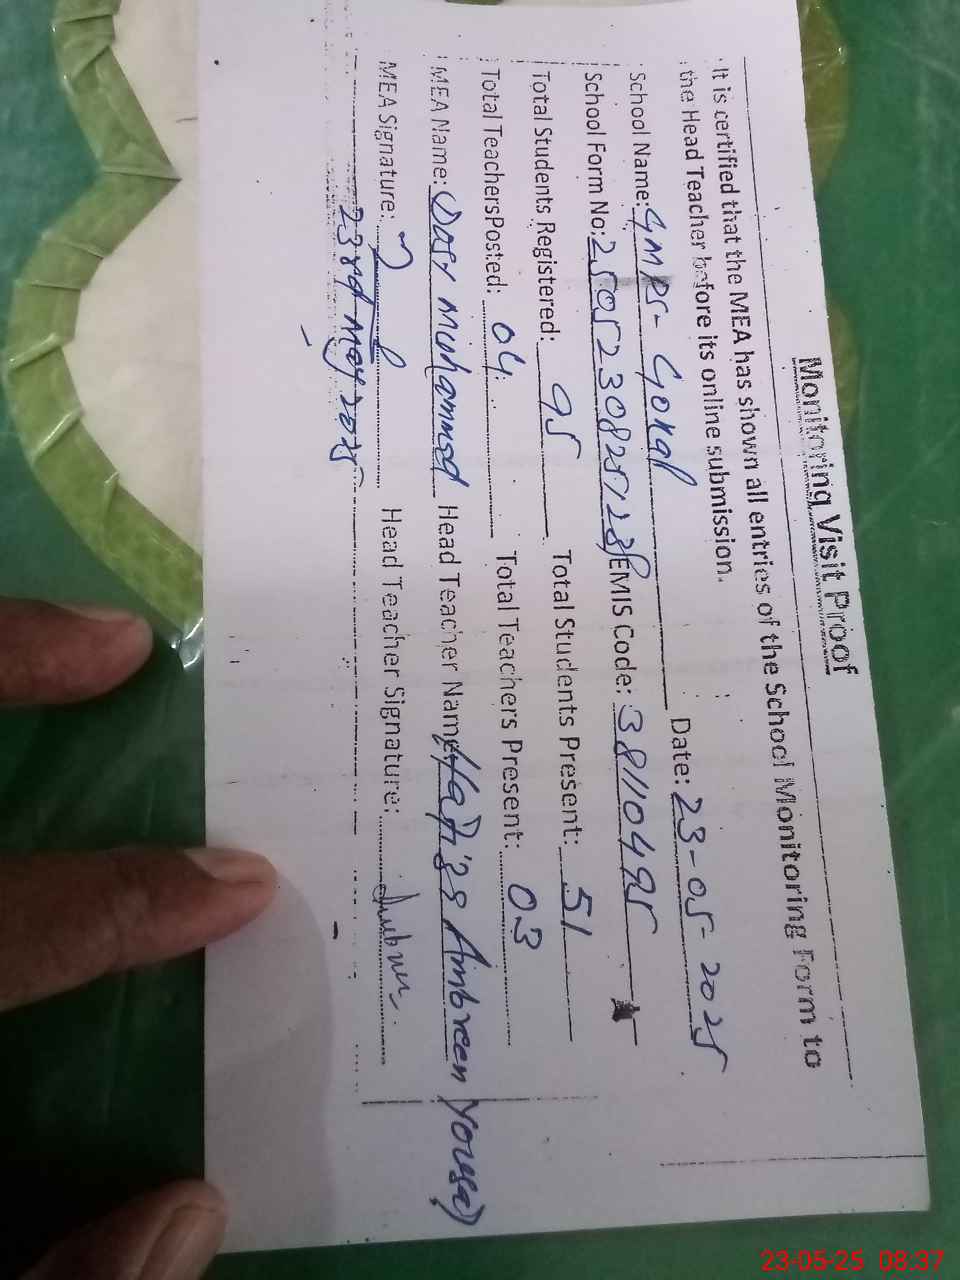 Monitoring Visit Proof
It is certified that the MEA has shown all entries of the School Monitoring Form to
the Head Teacher before its online submission.
School Name: GMPS- Gohal Date: 23-05-2025
School Form No: EMIS Code: 38110495
Total Students Registered: 95 Total Students Present: 51
Total TeachersPosted: 04 Total Teachers Present: 03
MEA Name: Dost Muhammad Head Teacher Name: Hafiza Ambreen Yousaf
MEA Signature: Head Teacher Signature:
23rd May 2025
23-05-25 08:37